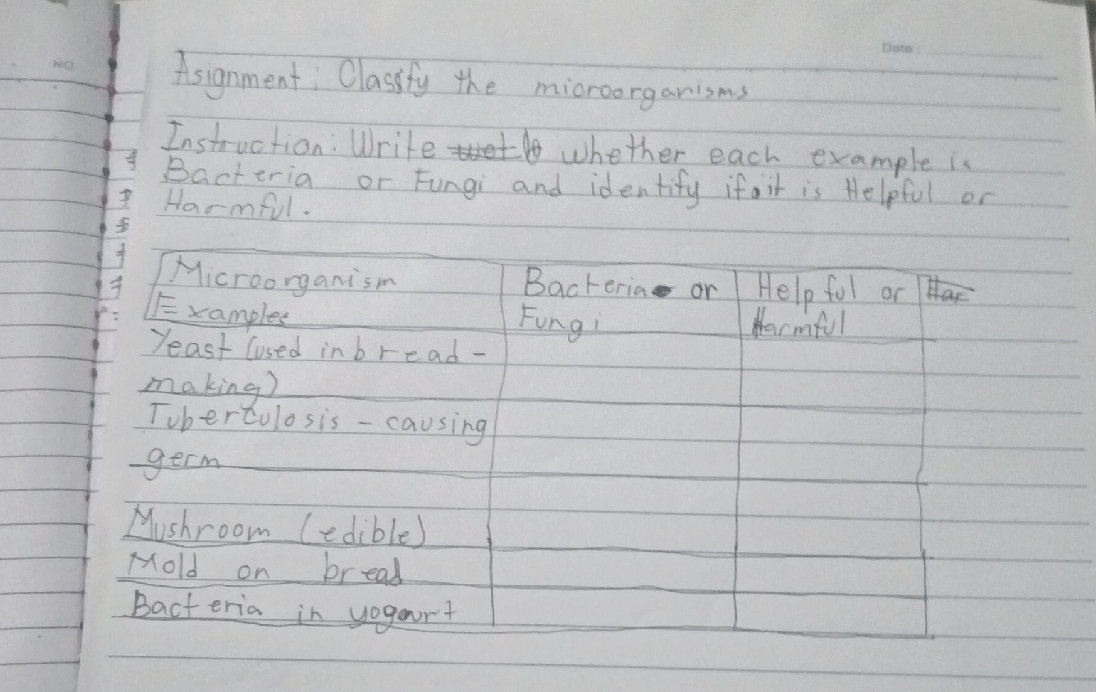 Date
NO
Asignment: Classify the microorganisms
Instruction: Write whether each example is
Bacteria or Fungi and identify if it is Helpful or
Harmful.
Microorganism Examples | Bacteria or Fungi | Helpful or Harmful
Yeast (used in bread-
making)
Tuberculosis - causing
germ
Mushroom (edible)
Mold on bread
Bacteria in yogourt